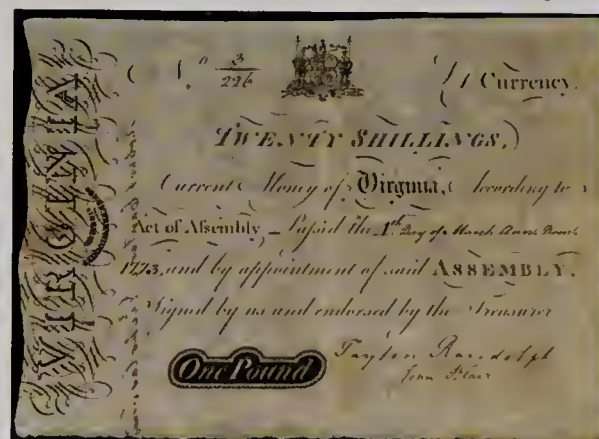 VIRGINIA
No 3/226
£1 Currency.
TWENTY SHILLINGS,
Current Money of Virginia, According to
Act of Assembly, Passed the 1th Day of March Anno Domi
1773, and by appointment of said ASSEMBLY.
Signed by us and endorsed by the Treasurer
One Pound
Peyton Randolph
John Blair